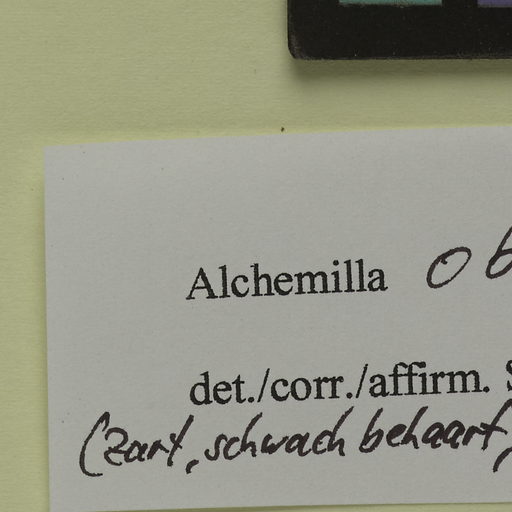 Alchemilla ob
det./corr./affirm. S
(zart, schwach behaart,